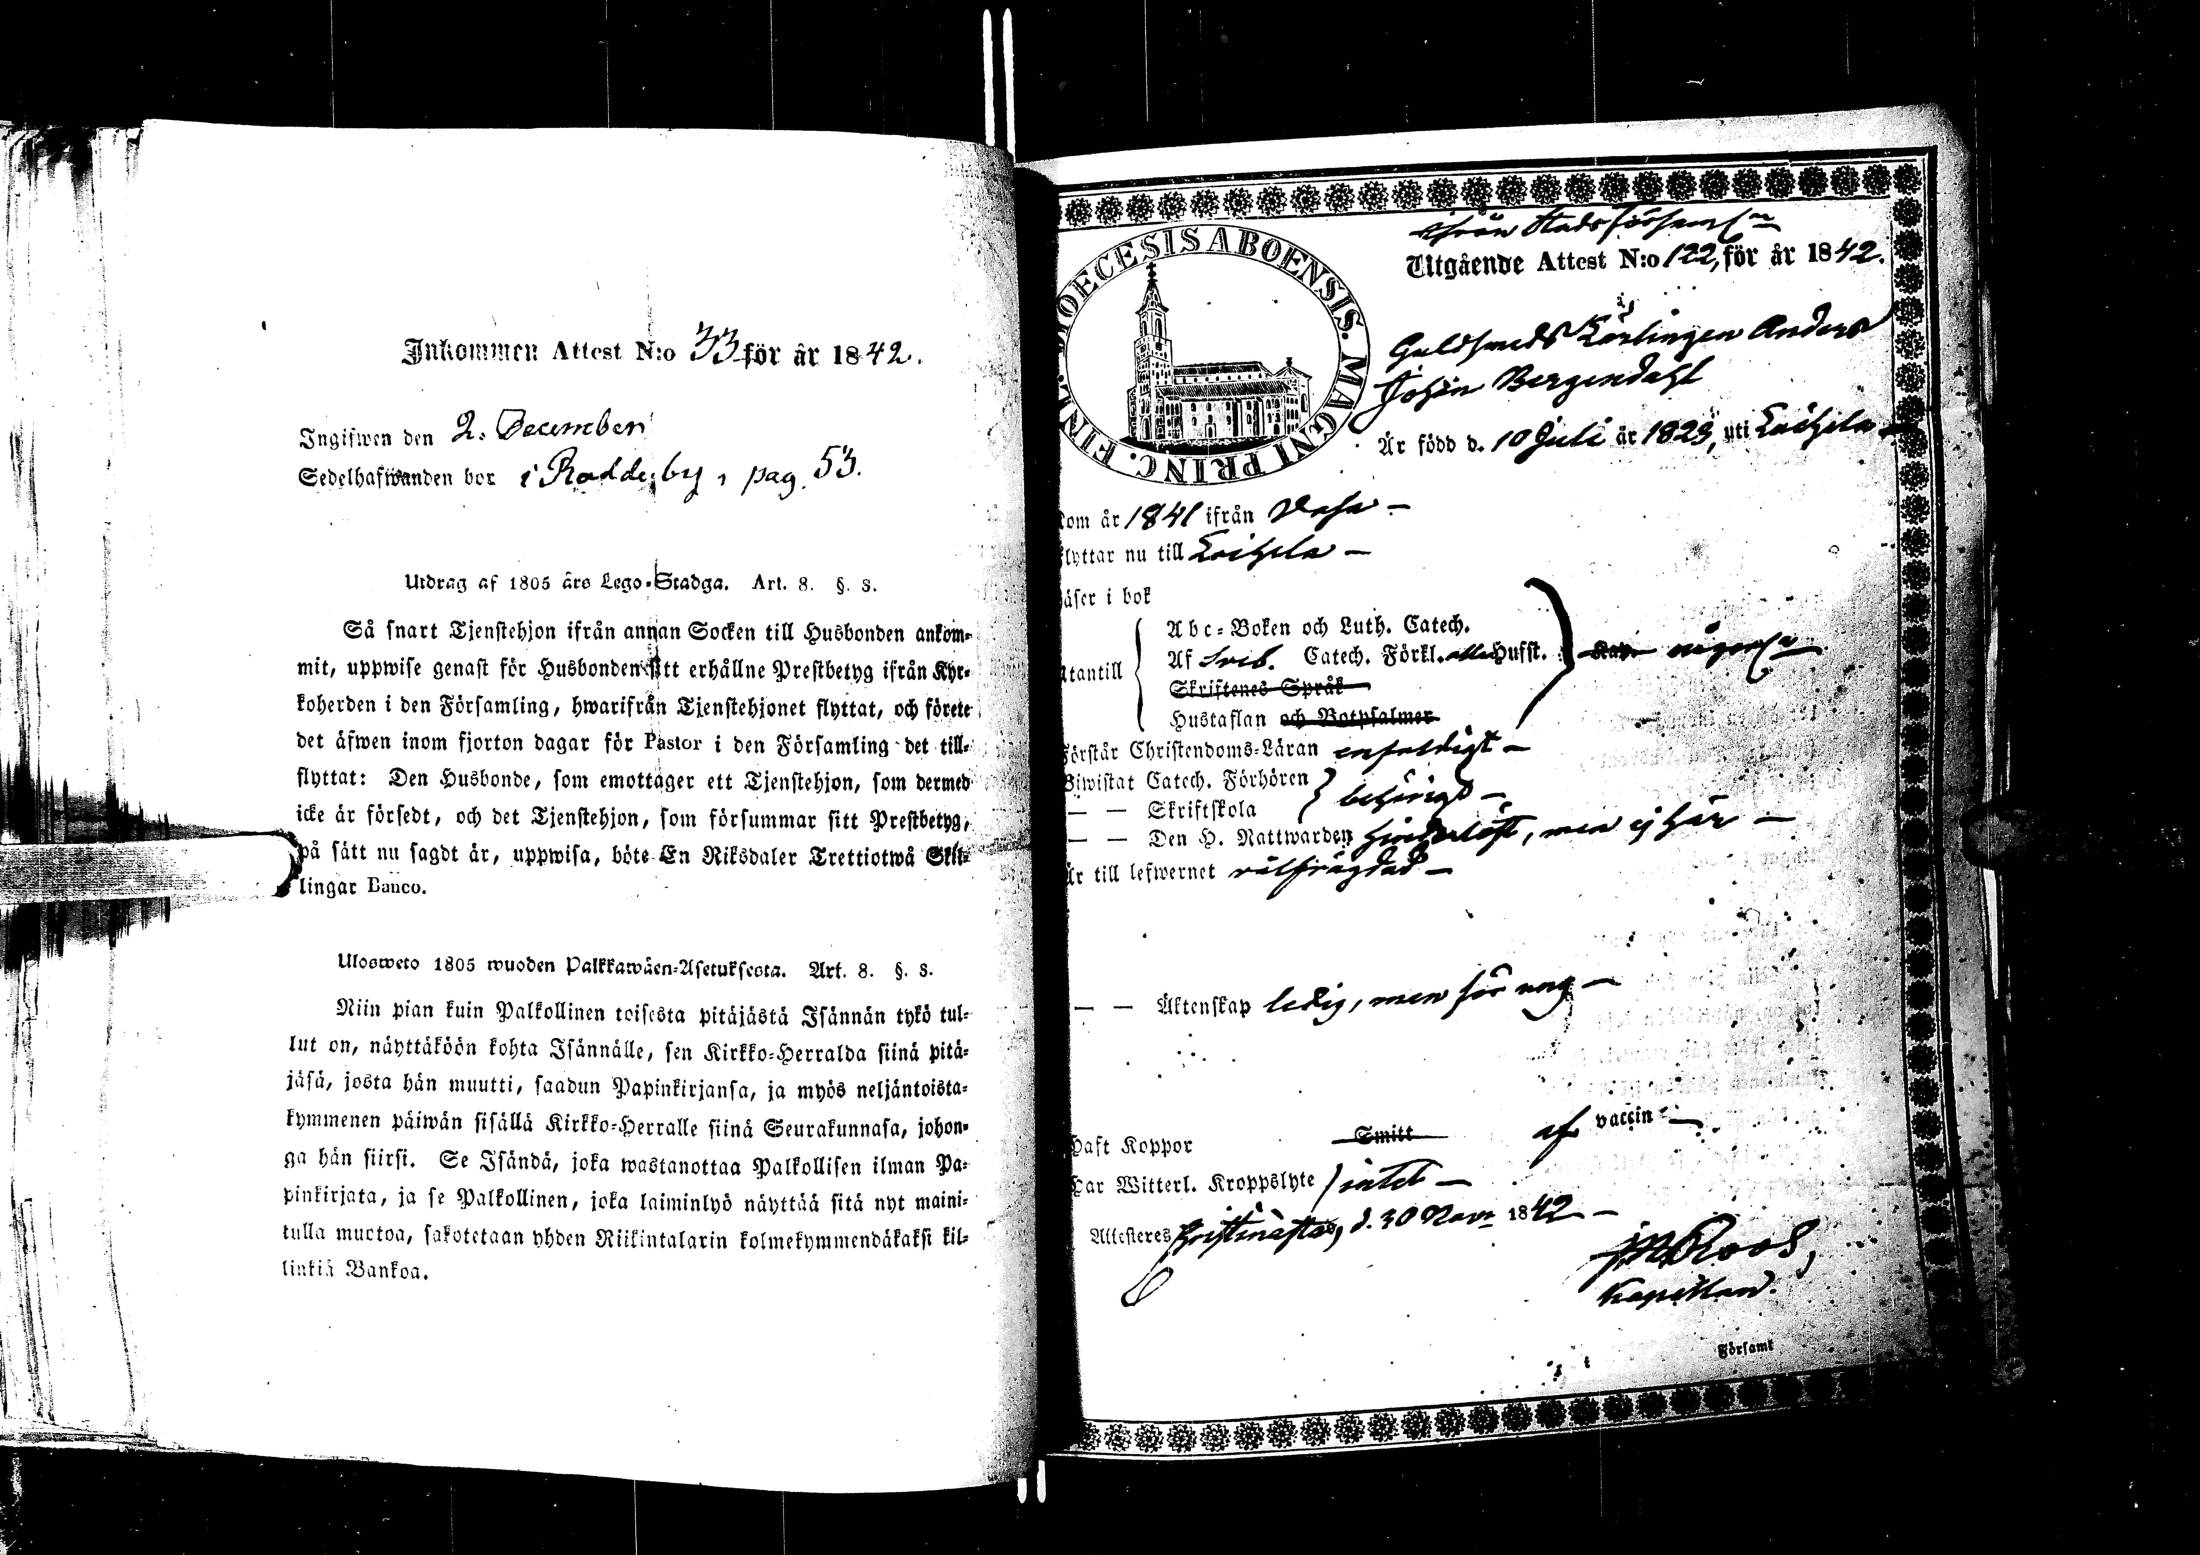 Inkommen Attest N:o 33 för år 1842.
Ingifwen den 2. December
Sedelhafwanden bor i Raddeby, pag. 53.
Utdrag af 1805 års Lego-Stadga. Art. 8. §. 8.
Så snart Tjenstehjon ifrån annan Socken till Husbonden ankom-
mit, uppwise genast för Husbonden sitt erhållne Prestbetyg ifrån Kyr-
koherden i den Församling, hwarifrån Tjenstehjonet flyttat, och förete
det äfwen inom fjorton dagar för Pastor i den Församling det till-
flyttat: Den Husbonde, som emottager ett Tjenstehjon, som dermed
icke är försedt, och det Tjenstehjon, som försummar sitt Prestbetyg,
på sätt nu sagdt är, uppwisa, böte En Riksdaler Trettiotwå Skil-
lingar Banco.
Ulosweto 1805 wuoden Palkkawäen-Asetuksesta. Art. 8. §. 8.
Niin pian kuin Palkollinen toisesta pitäjästä Isännän tykö tul-
lut on, näyttäköön kohta Isännälle, sen Kirkko-Herralda siinä pitä-
jäsä, josta hän muutti, saadun Papinkirjansa, ja myös neljäntoista-
kymmenen päiwän sisällä Kirkko-Herralle siinä Seurakunnasa, johon-
ga hän siirsi. Se Isändä, joka wastanottaa Palkollisen ilman Pa-
pinkirjata, ja se Palkollinen, joka laiminlyö näyttää sitä nyt maini-
tulla muotoa, sakotetaan yhden Riikintalarin kolmekymmendäkaksi kil-
linkiä Bankoa.
DIOECESIS ABOENSIS. MAGNI PRINC. FINL.
ifrån Stads Församl:n
Utgående Attest N:o 122, för år 1842.
Guldsmeds Lärlingen Anders
Johan Bergendahl
Är född d. 10 Juli år 1823, uti Laihela
Kom år 1841 ifrån Vasa –
flyttar nu till Laihela –
Läser i bok
Utantill
Abc-Boken och Luth. Catech.
Af Sveb. Catech. Förkl. Husst.
Skriftenes Språk
Hustaflan och Botpsalmer
Förstår Christendoms-Läran enfaldigt –
Biwistat Catech. Förhören
— — Skriftskola behörigt –
— — Den H. Nattwarden hinderlöst, men ej här –
Är till lefwernet välfrägdad –
— — Äktenskap ledig, men för ung –
Haft Koppor Smitt af vaccin –
Har Witterl. Kroppslyte intet –
Attesteres Christinæstad, d. 30 Nov. 1842 –
Roos,
Kapellan.
Församl